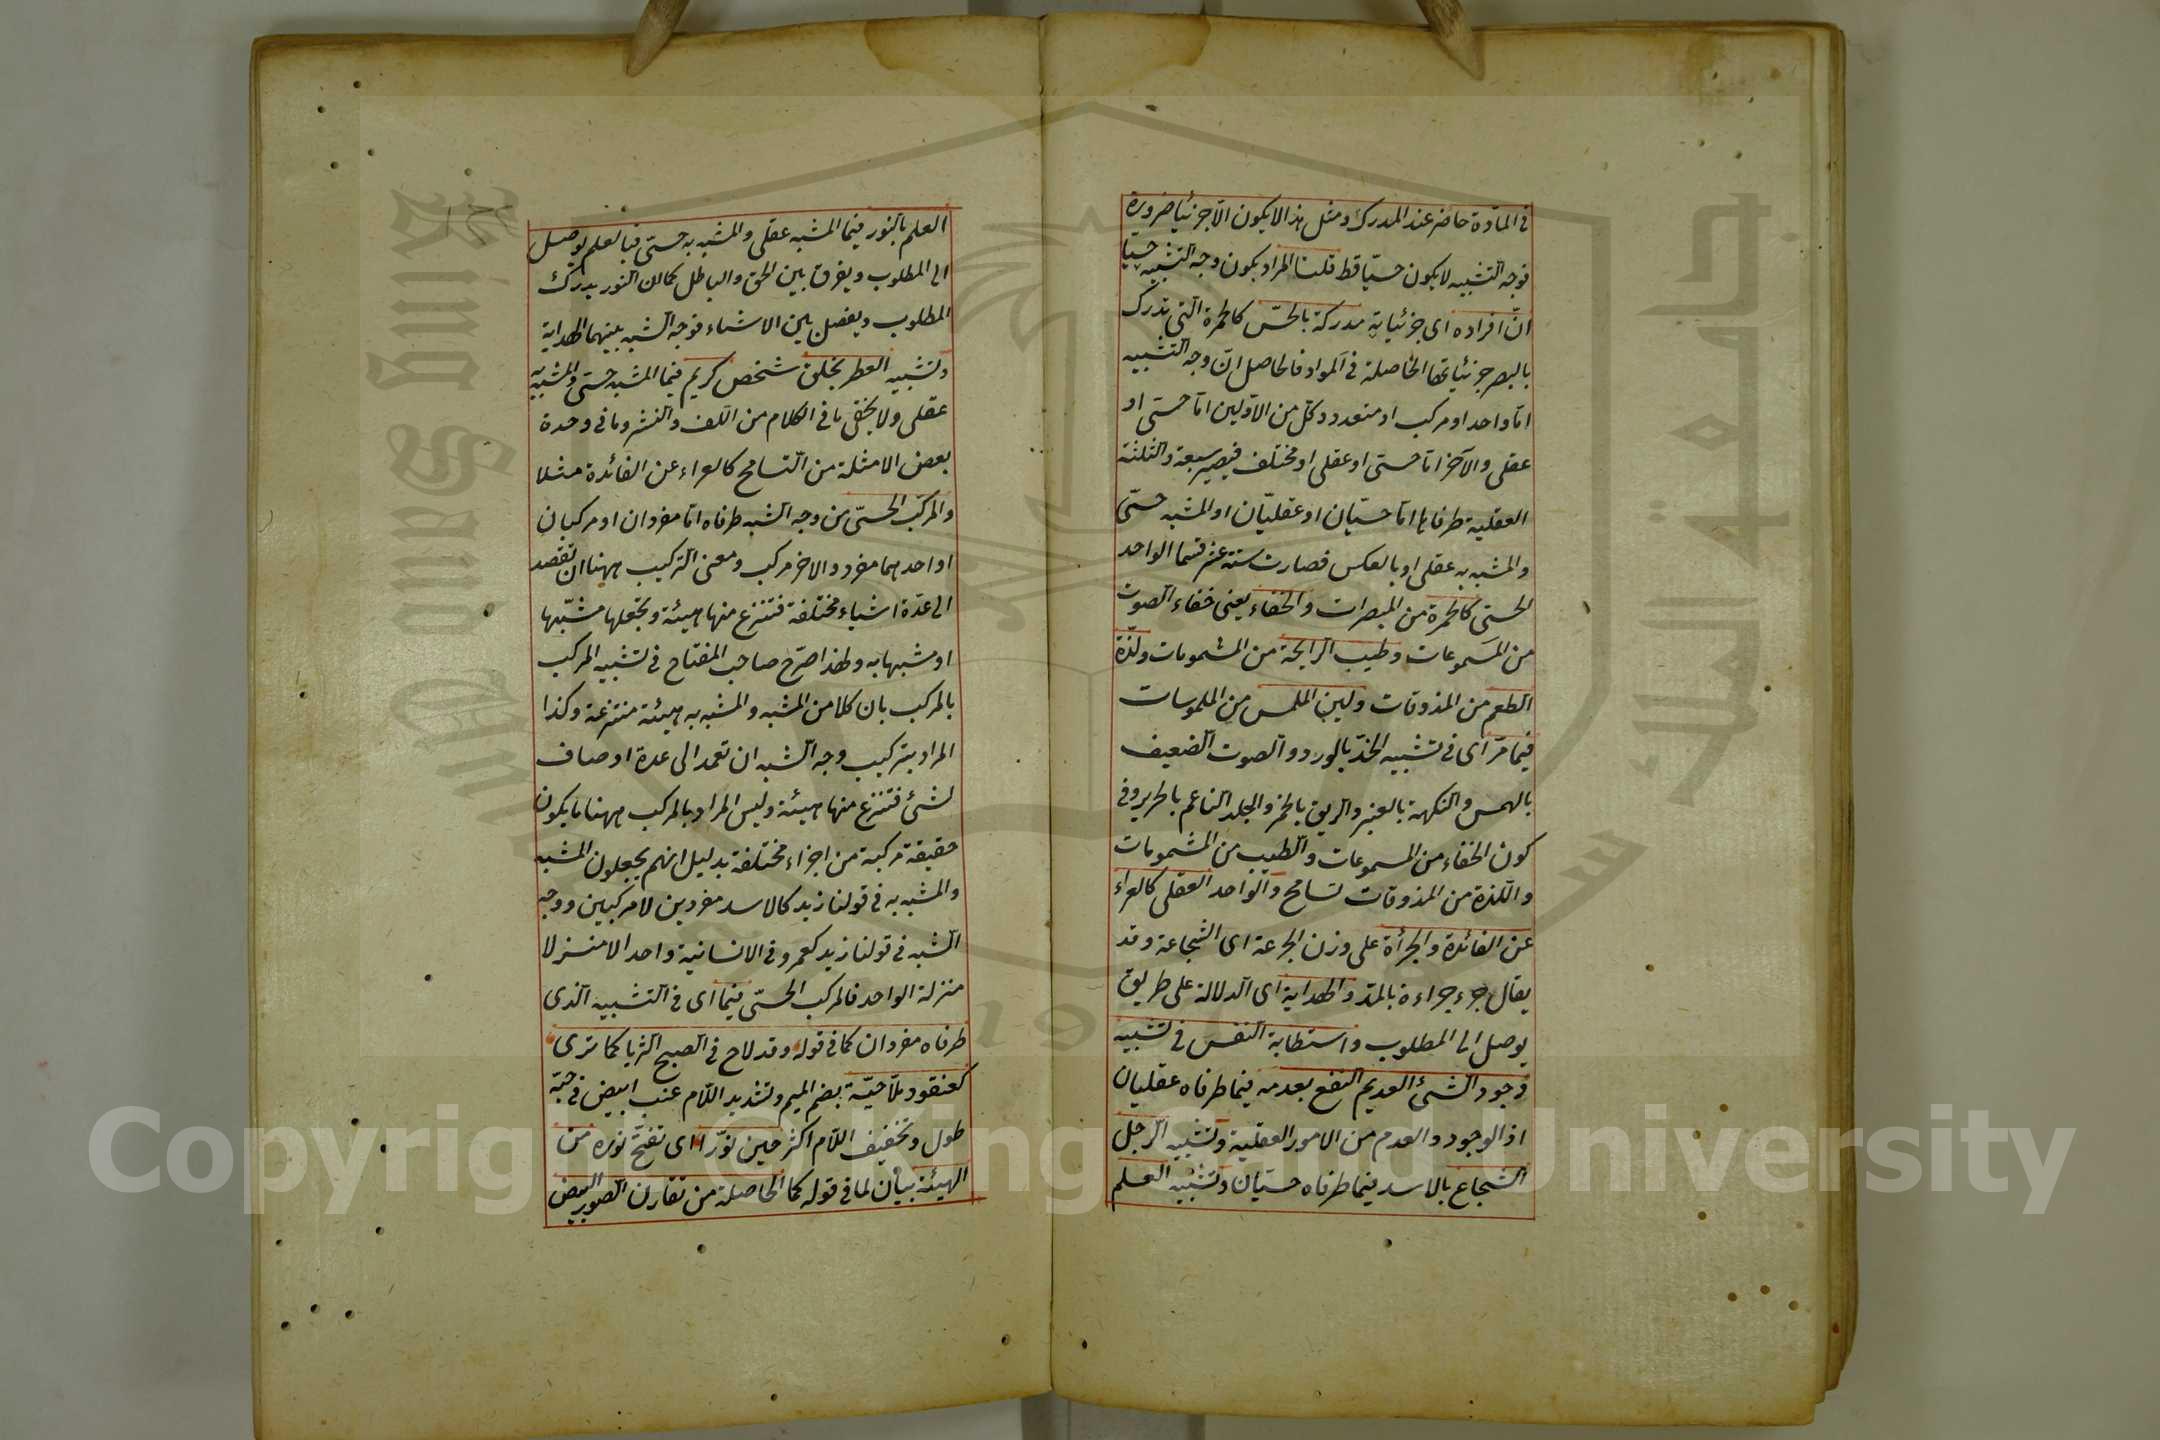 في المادة حاضر عند المدرك ومثل هذا لا يكون الا جزئيا ضرورة
فوجه التشبيه لا يكون حسيا قط قلنا المراد بكون وجه التشبيه حسيا
ان افراده اى جزئياته مدركة بالحس كالحمرة التي تدرك
بالبصر جزئياتها الحاصلة في المواد فالحاصل ان وجه التشبيه
اما واحد او مركب او متعدد وكل من الاولين اما حسي او
عقلي والآخر اما حسي او عقلي او مختلف فيصير سبعة والثلثة
العقلية طرفاها اما حسيان او عقليان او المشبه حسي
والمشبه به عقلي او بالعكس فصارت ستة عشر قسما الواحد
الحسي كالحمرة من المبصرات والخفاء يعني خفاء الصوت
من المسموعات وطيب الرايحة من المشمومات ولذة
الطعم من المذوقات ولين الملمس من الملموسات
فيما مر اى في تشبيه الخد بالورد والصوت الضعيف
بالهمس والنكهة بالعنبر والريق بالخمر والجلد الناعم بالحرير وفي
كون الخفاء من المسموعات والطيب من المشمومات
واللذة من المذوقات تسامح والواحد العقلي كالعراء
عن الفائدة والجرأة على وزن الجرعة اى الشجاعة وقد
يقال جرء جراءة بالمد والهداية اى الدلالة على طريق
يوصل الى المطلوب واستطابة النفس في تشبيه
وجود الشئ العديم النفع بعدمه فيما طرفاه عقليان
اذ الوجود والعدم من الامور العقلية وتشبيه الرجل
الشجاع بالاسد فيما طرفاه حسيان وتشبيه العلم
العلم بالنور فيما المشبه عقلي والمشبه به حسي فبالعلم يوصل
الى المطلوب ويفرق بين الحق والباطل كما ان النور يدرك
المطلوب ويفصل بين الاشياء فوجه الشبه بينهما الهداية
وتشبيه العطر بخلق شخص كريم فيما المشبه حسي والمشبه به
عقلي ولا يخفى ما في الكلام من اللف والنشر وما في وحدة
بعض الامثلة من التسامح كالعراء عن الفائدة مثلا
والمركب الحسي من وجه الشبه طرفاه اما مفردان او مركبان
او احدهما مفرد والاخر مركب ومعنى التركيب ههنا ان تقصد
الى عدة اشياء مختلفة فتنتزع منها هيئة وتجعلها مشبها
او مشبها به ولهذا صرح صاحب المفتاح في تشبيه المركب
بالمركب بان كلا من المشبه والمشبه به هيئة منتزعة وكذا
المراد بتركيب وجه الشبه ان تعمد الى عدة اوصاف
لشئ فتنتزع منها هيئة وليس المراد بالمركب ههنا ما يكون
حقيقة مركبة من اجزاء مختلفة بدليل انهم يجعلون المشبه
والمشبه به في قولنا زيد كالاسد مفردين لا مركبين ووجه
الشبه في قولنا زيد كعمرو في الانسانية واحدا لا منزلا
منزلة الواحد فالمركب الحسي فيما اى في التشبيه الذى
طرفاه مفردان كما في قوله وقد لاح في الصبح الثريا كما ترى
كعنقود ملاحية بضم الميم وتشديد اللام عنب ابيض في حبه
طول وتخفيف اللام اكثر حين نورا اى تفتح نوره من
الهيئة بيان لما في قوله كما الحاصلة من تقارن الصور البيض
Copyright © King Saud University
جامعة الملك سعود
King Saud University
1957